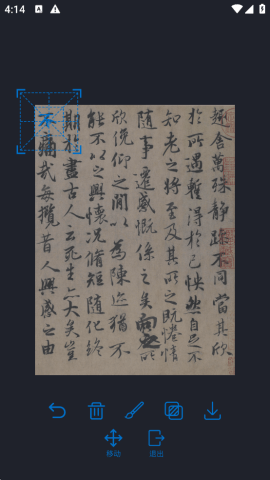 4:14
趣舍萬殊靜躁不同當其欣
於所遇暫得於己怏然自足不
知老之將至及其所之既惓情
隨事遷感慨係之矣向之所
欣俛仰之間以為陳迹猶不
能不以之興懷況脩短隨化終
期於盡古人云死生亦大矣豈
不痛哉每攬昔人興感之由
移动
退出